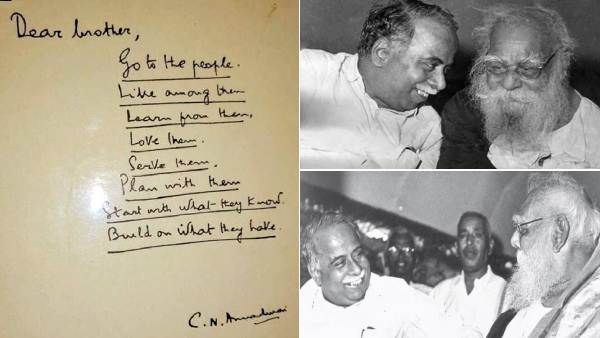 Dear brother,
Go to the people.
Live among them
Learn from them,
Love them.
Serve them.
Plan with them
Start with what they know.
Build on what they have.
C. N. Annadurai